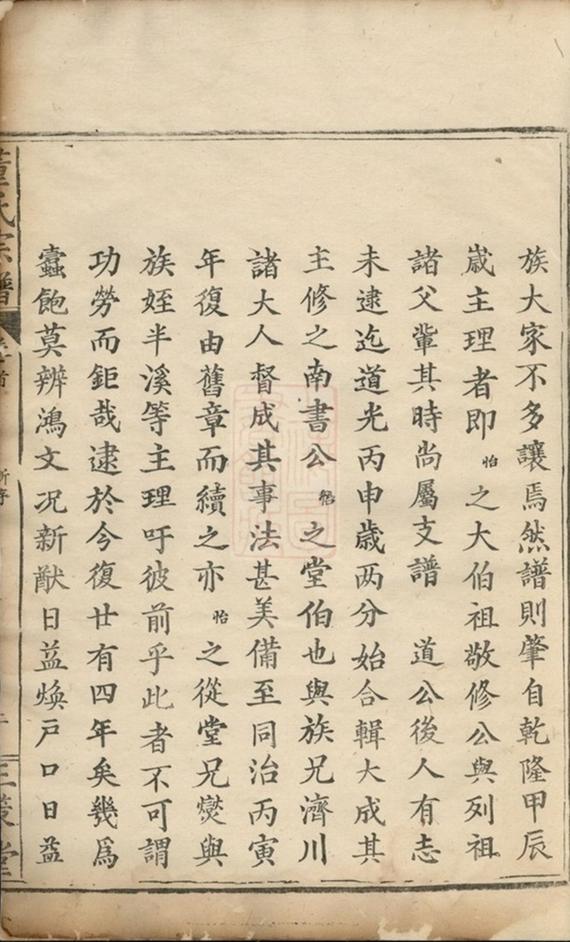 族大家不多讓焉然譜則肇自乾隆甲辰
歲主理者即怡之大伯祖敬修公與列祖
諸父輩其時尚屬支譜 道公後人有志
未逮迄道光丙申歲两分始合輯大成其
主修之南書公怡之堂伯也與族兄濟川
諸大人督成其事法甚美備至同治丙寅
年復由舊章而續之亦怡之從堂兄爕與
族姪半溪等主理吁彼前乎此者不可謂
功勞而鉅哉逮於今復廿有四年矣幾為
蠹飽莫辨鴻文况新猷日益煥戸口日益
董氏宗譜
三策堂